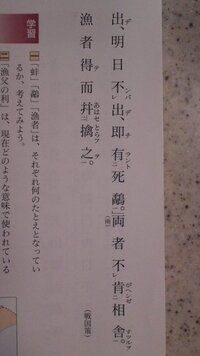 出デ明日不レ出デンバ、即チ有ラント二死鷸一。」両者不レ肯ガヘンゼ二相舎スツルヲ一。
漁者得テ而幷あはセ擒とらフ之ヲ一。
(戦国策)
学習
一 「蚌」「鷸」「漁者」は、それぞれ何のたとえとなってい
るか、考えてみよう。
二 「漁父の利」は、現在どのような意味で使われている